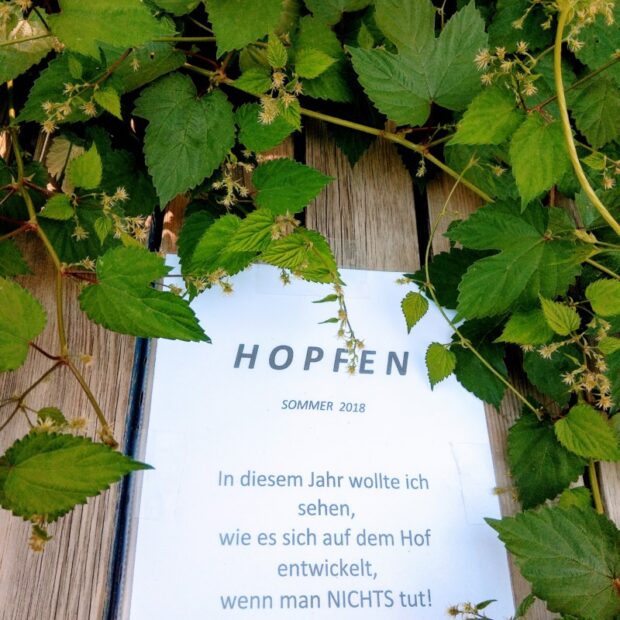 HOPFEN
SOMMER 2018
In diesem Jahr wollte ich
sehen,
wie es sich auf dem Hof
entwickelt,
wenn man NICHTS tut!